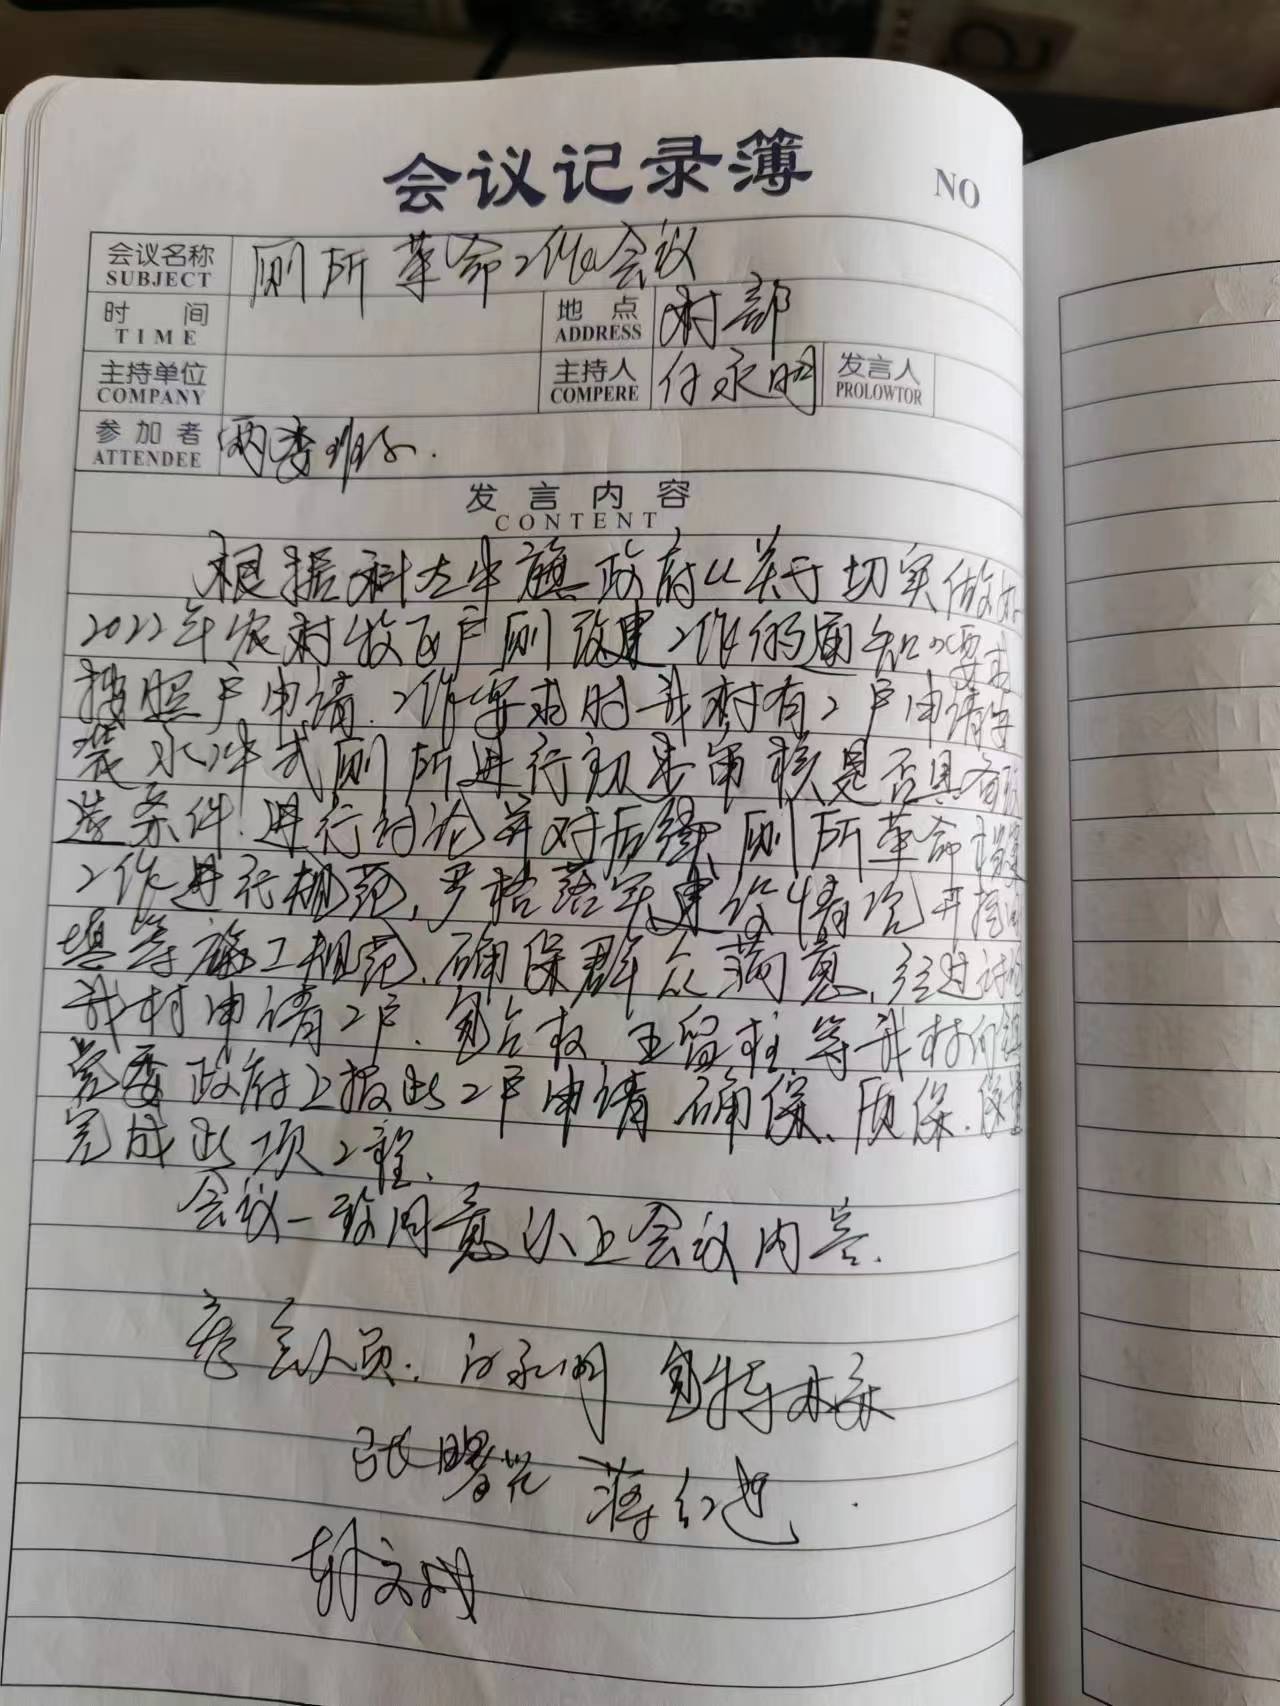 会议记录簿
NO
会议名称 厕所革命工作会议
SUBJECT
时 间 地 点 村部
TIME ADDRESS
主持单位 主持人 付永明 发言人
COMPANY COMPERE PROLOWTOR
参加者 两委班子.
ATTENDEE
发 言 内 容
CONTENT
根据科左中旗政府《关于切实做好
2022年农村牧区户厕改建工作的通知》要求
按照户申请、工作要求时我村有2户申请安
装水冲式厕所进行初步审核是否具备改
造条件.进行讨论并对后续厕所革命档案
工作进行规范,严格落实建设情况开挖回
填等施工规范,确保群众满意,经过讨论
我村申请2户、包占权、王留柱等我村向镇
党委政府上报此2户申请 确保、质保、保量
完成此项工程.
会议一致同意以上会议内容.
参会人员: 付永明 包特木乐
张曙光
文成